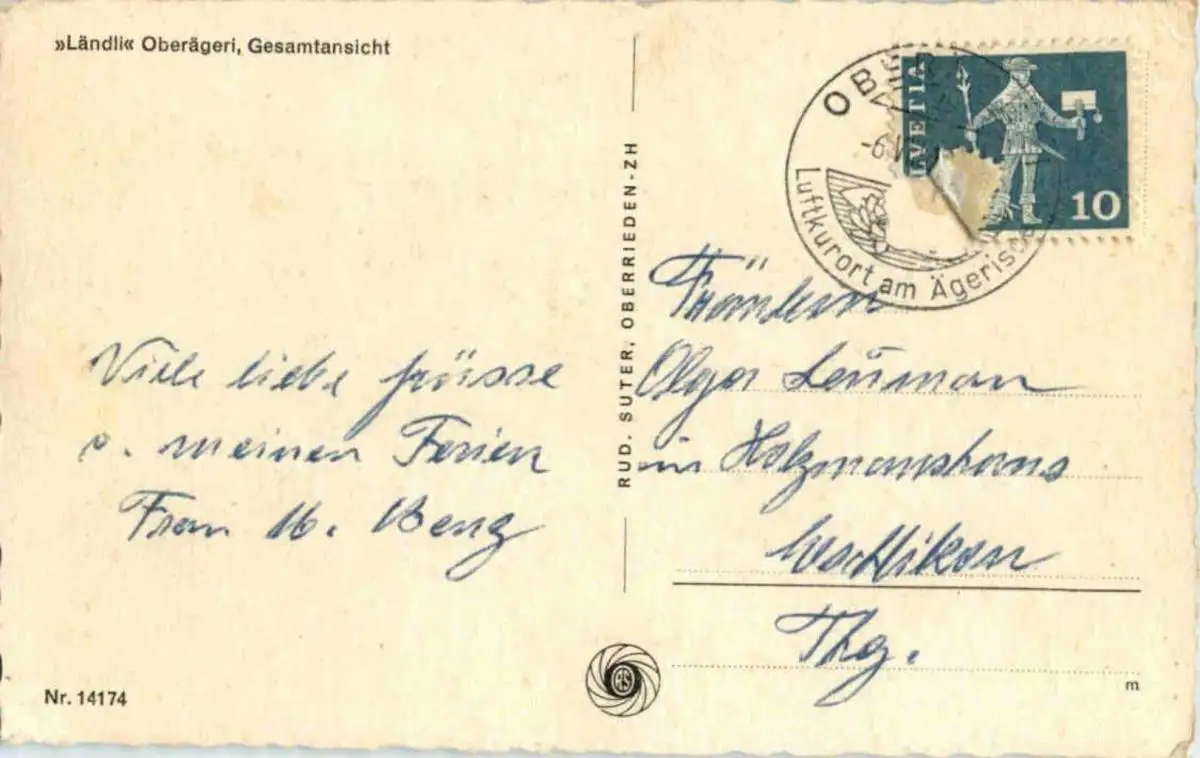 »Ländli« Oberägeri, Gesamtansicht
Viele liebe grüsse
v. meinen Ferien
Frau M. Benz
Nr. 14174
RUD. SUTER, OBERRIEDEN-ZH
OBER
-6.V
Luftkurort am Ägerisee
HELVETIA
10
Fräulein
Olga Leüman
im Holzmanshaus
Eschlikon
Thg.
m